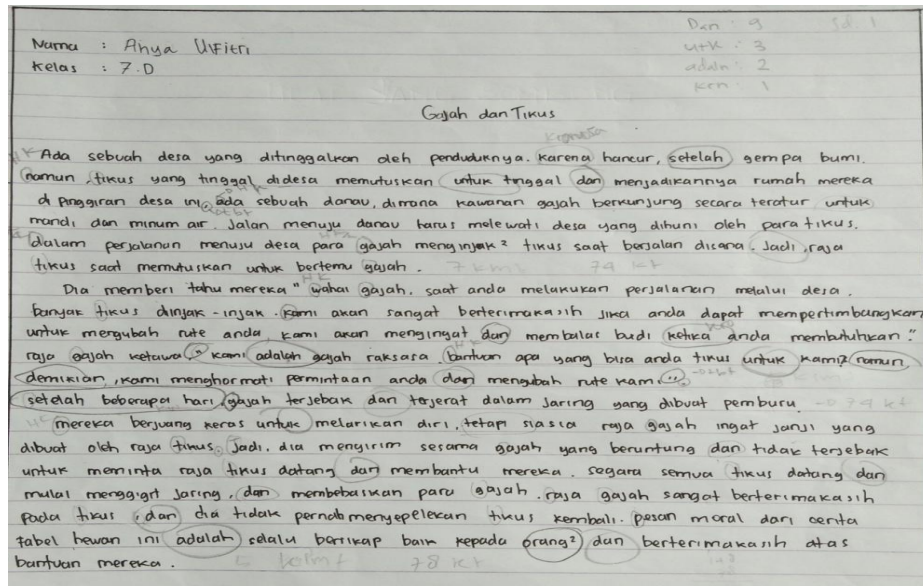 Dan : 9 Sd. 1
Nama : Ahya Ulfitri utk : 3
Kelas : 7.D adaln : 2
krn : 1
Gajah dan Tikus
Ada sebuah desa yang ditinggalkan oleh penduduknya. Karena hancur, setelah gempa bumi.
namun, tikus yang tinggal didesa memutuskan untuk tinggal dan menjadikannya rumah mereka
di Pinggiran desa ini, ada sebuah danau, dimana kawanan gajah berkunjung secara teratur untuk
mandi dan minum air. Jalan menuju danau harus melewati desa yang dihuni oleh para tikus.
dalam perjalanan menuju desa para gajah menginjak² tikus saat berjalan disana. Jadi, raja
tikus saat memutuskan untuk bertemu gajah. 7 kmt 74 kt
Dia memberi tahu mereka " wahai gajah. saat anda melakukan perjalanan melalui desa.
banyak tikus diinjak-injak. Kami akan sangat berterimakasih jika anda dapat mempertimbangkan
untuk mengubah rute anda, kami akan mengingat dan membalas budi ketika anda membutuhkan."
raja gajah ketawa " kami adalah gajah raksasa. bantuan apa yang bisa anda tikus untuk kami? namun,
demikian, kami menghormati permintaan anda dan mengubah rute kami."
setelah beberapa hari, gajah terjebak dan terjerat dalam jaring yang dibuat pemburu. 74 kt
mereka berjuang keras untuk melarikan diri, tetapi siasia raja gajah ingat janji yang
dibuat oleh raja tikus. Jadi, dia mengirim sesama gajah yang beruntung dan tidak terjebak
untuk meminta raja tikus datang dan membantu mereka. segara semua tikus datang dan
mulai menggigit jaring, dan membebaskan para gajah. raja gajah sangat berterimakasih
pada tikus, dan dia tidak pernah menyepelekan tikus kembali. pesan moral dari cerita
fabel hewan ini adalah selalu bersikap baik kepada orang² dan berterimakasih atas
bantuan mereka. 78 kt